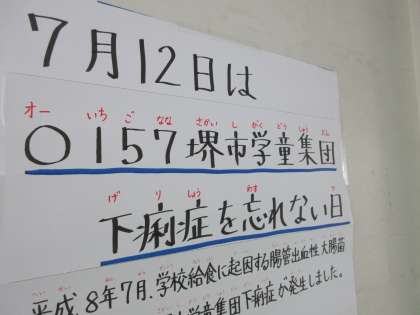 7月12日は
オー いちご なな さかい し がく どう しゅう だん
O157堺市学童集団
げ り しょう わす ひ
下痢症を忘れない日
平成8年7月、学校給食に起因する腸管出血性大腸菌
学童集団下痢症が発生しました。